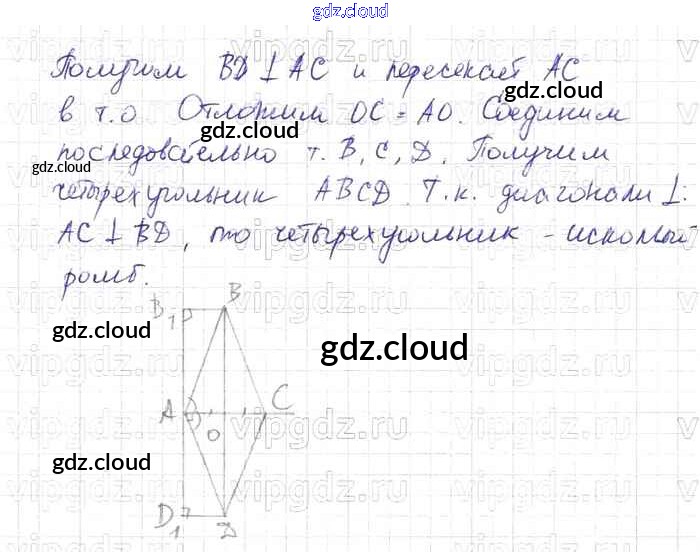 gdz.cloud
Получим BD ⊥ AC и пересекает AC
в т.О. Отложим OC = AO. Соединим
последовательно т. B, C, D. Получим
четырехугольник ABCD. Т.к. диагонали ⊥:
AC ⊥ BD, то четырехугольник - искомый
ромб.
gdz.cloud
gdz.cloud
gdz.cloud
B₁ B
gdz.cloud
gdz.cloud
A O C
gdz.cloud
D₁ D
vipgdz.ru